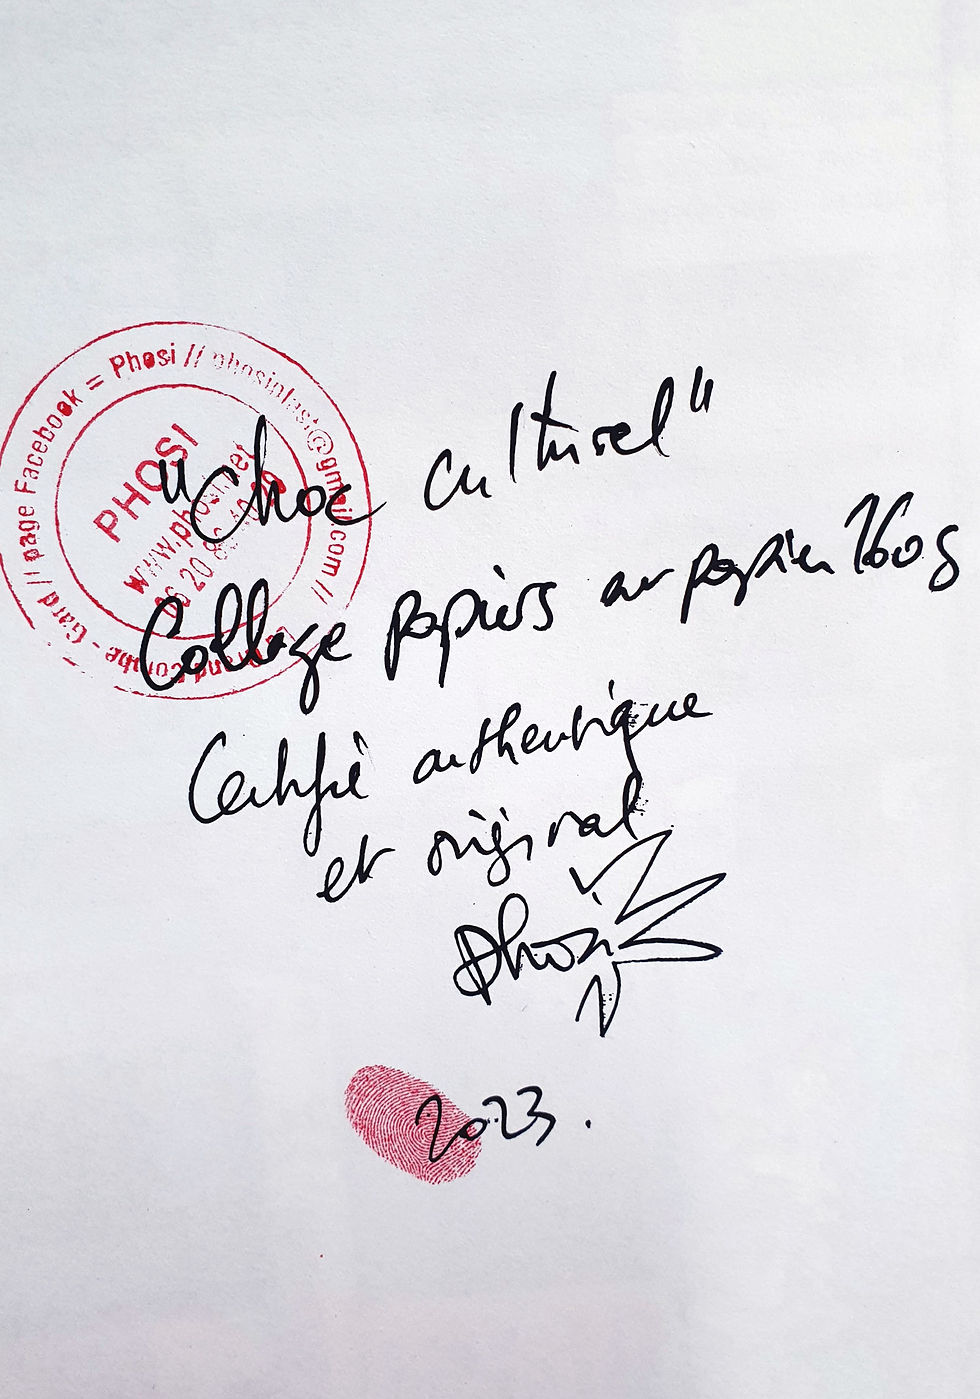 page Facebook = Phosi // phosiplast@gmail.com //
Grand Combe - Gard //
PHOSI
www.phosi.net
06 20 86
"Choc culturel"
Collage papiers sur papier 160g
Certifié authentique
et original
Phosi
2023.